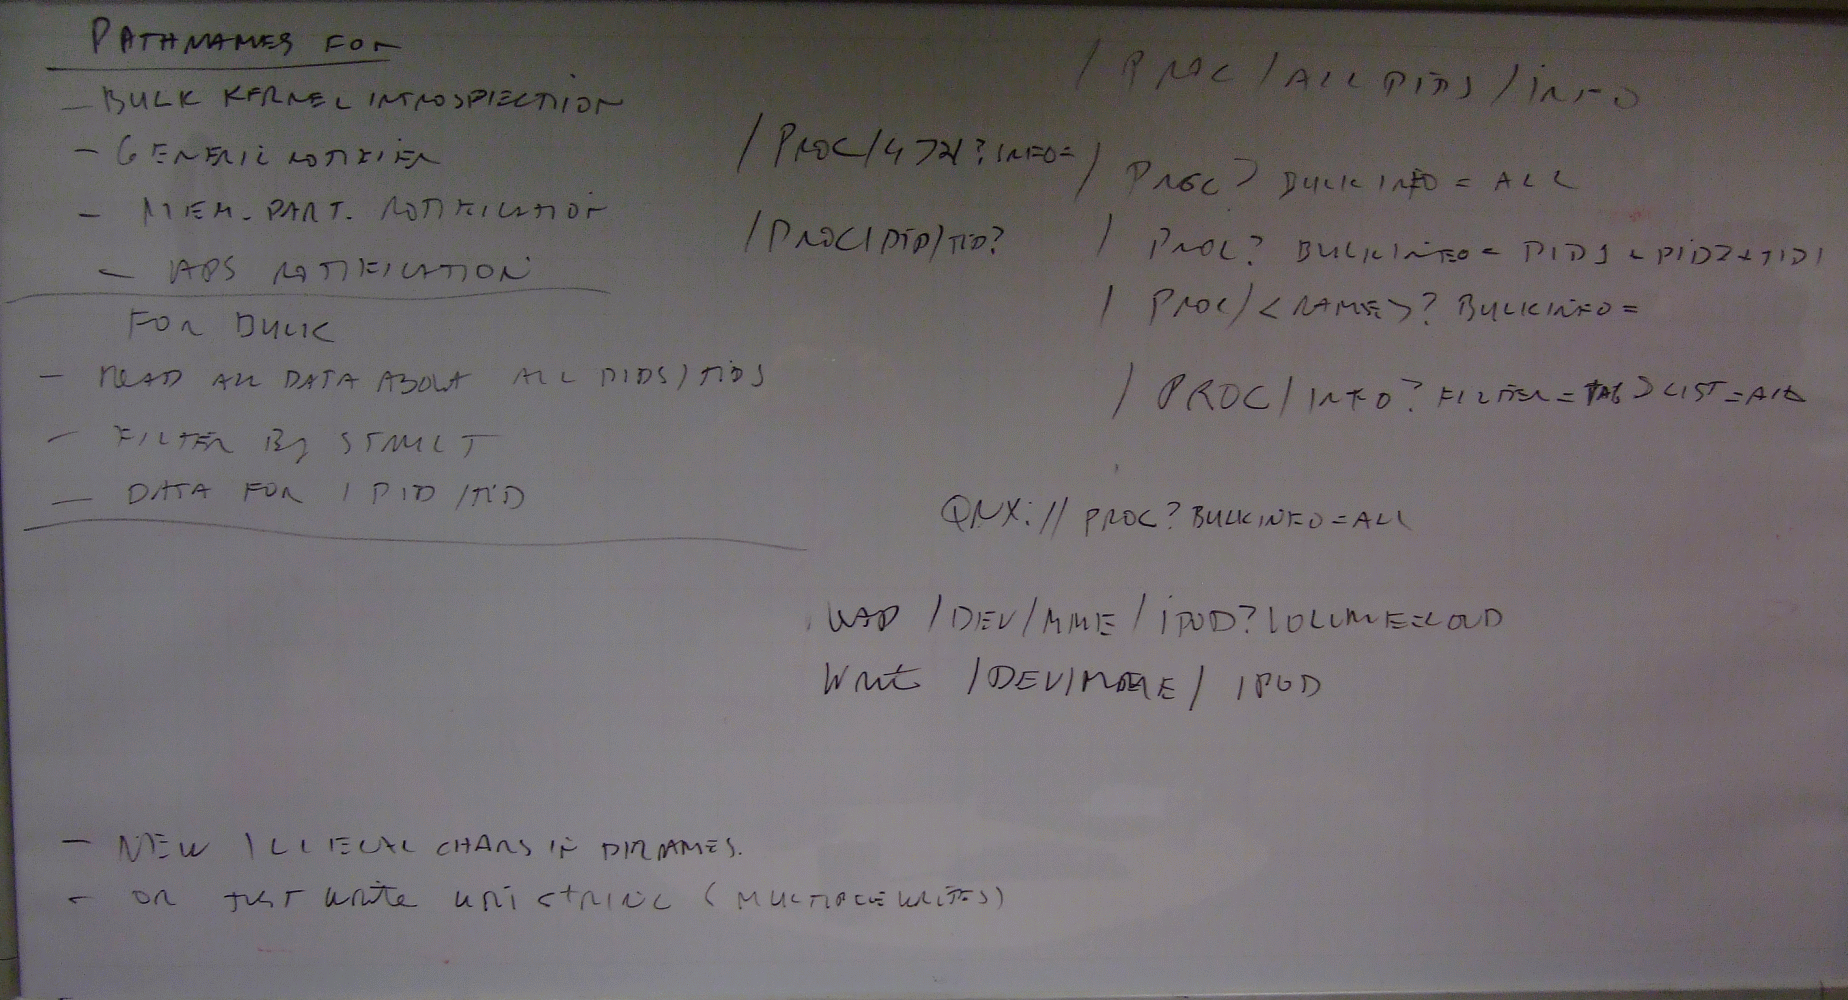 PATHNAMES FOR
- BULK KERNEL INTROSPECTION
- GENERIC NOTIFIER
- MEM. PART. NOTIFICATION
- APS NOTIFICATION
FOR BULK
- READ ALL DATA ABOUT ALL PIDS/TIDS
- FILTER By STRUCT
- DATA FOR 1 PID/TID
/PROC/ALL PIDS/INFO
/PROC/4721?INFO=
/PROC? BULKINFO = ALL
/PROC/PID/TID?
/PROC? BULKINFO = PID1 + PID2 + TID1
/PROC/<NAME>? BULKINFO=
/PROC/INFO? FILTER = TAG LIST=
QNX://PROC?BULKINFO=ALL
/DEV/MME/IPOD?VOLUME=LOUD
Write /DEV/MME/IPOD
- NEW ILLEGAL CHARS IN DIRNAMES.
- OR JUST write URI STRING (MULTIPLE WRITES)